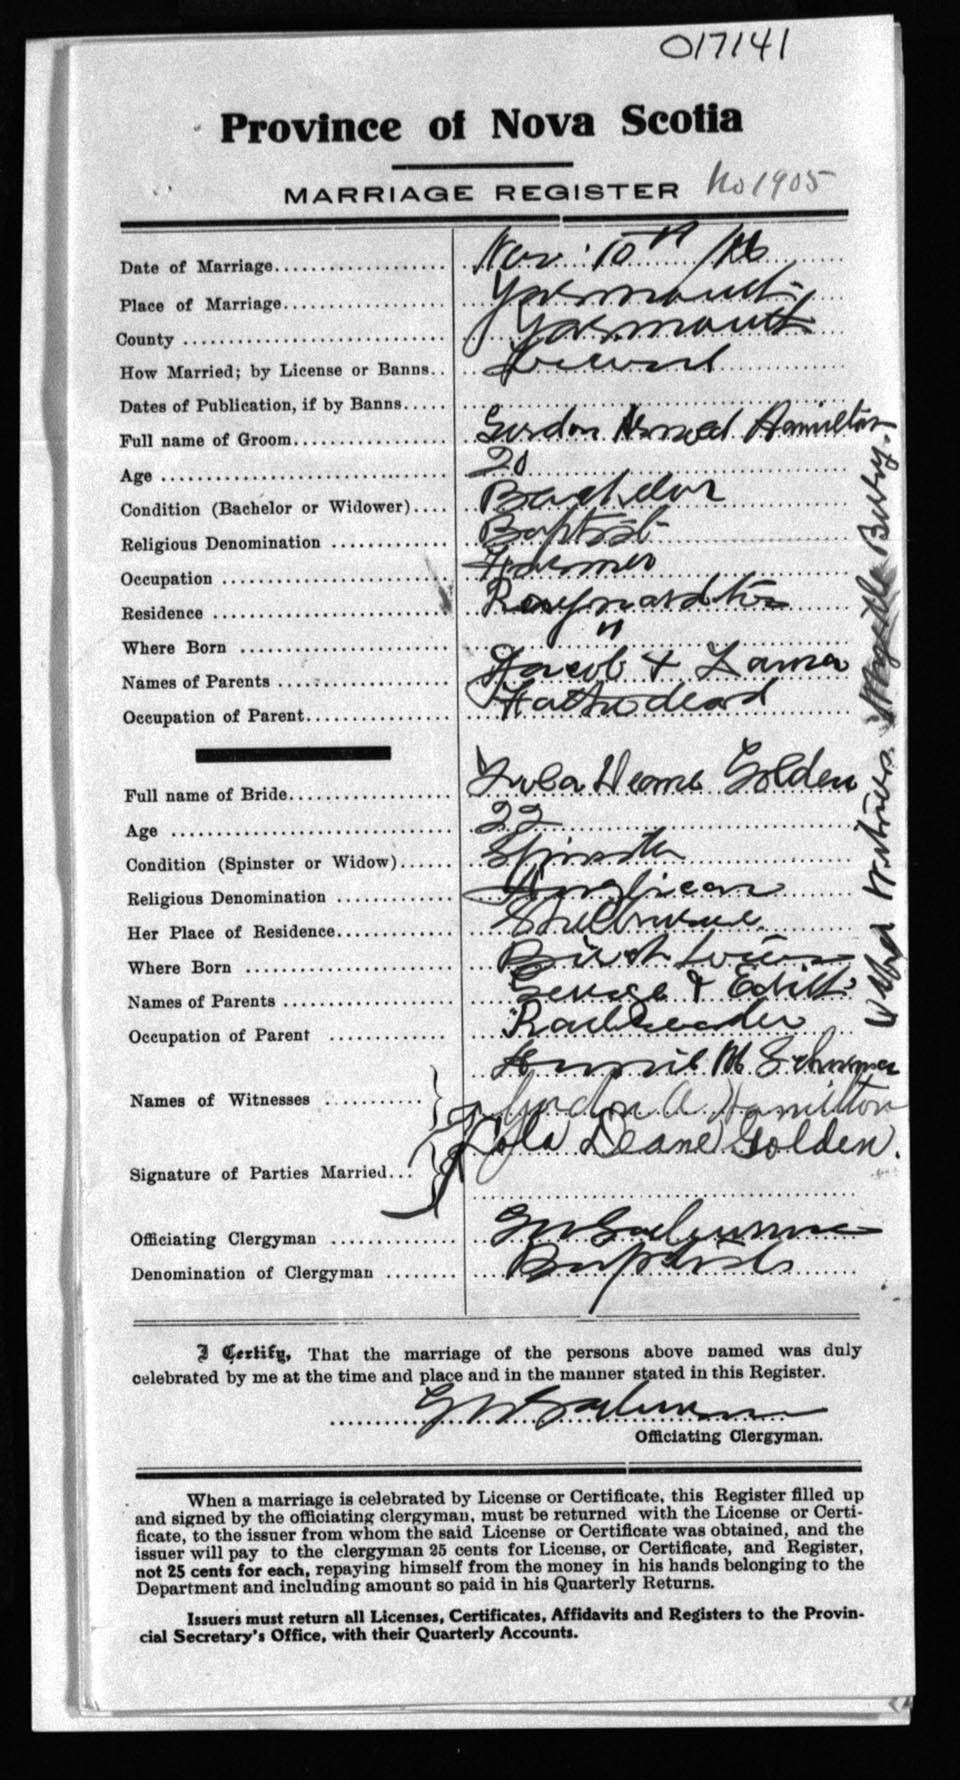 017141
Province of Nova Scotia
MARRIAGE REGISTER No 1905
Date of Marriage Nov 10th
Place of Marriage Yarmouth
County Yarmouth
How Married; by License or Banns
Dates of Publication, if by Banns
Full name of Groom Gordon Hamilton
Age 20
Condition (Bachelor or Widower) Bachelor
Religious Denomination Baptist
Occupation Farmer
Residence Raynardton
Where Born "
Names of Parents Jacob &
Occupation of Parent Father dead
Full name of Bride Deane Golden
Age 22
Condition (Spinster or Widow) Spinster
Religious Denomination Anglican
Her Place of Residence Shelburne
Where Born Birchtown
Names of Parents George & Edith
Occupation of Parent
Names of Witnesses Annie M
Gordon A Hamilton
Signature of Parties Married Deane Golden.
Officiating Clergyman
Denomination of Clergyman Baptist
Witness
I Certify, That the marriage of the persons above named was duly
celebrated by me at the time and place and in the manner stated in this Register.
Officiating Clergyman.
When a marriage is celebrated by License or Certificate, this Register filled up
and signed by the officiating clergyman, must be returned with the License or Certi-
ficate, to the issuer from whom the said License or Certificate was obtained, and the
issuer will pay to the clergyman 25 cents for License, or Certificate, and Register,
not 25 cents for each, repaying himself from the money in his hands belonging to the
Department and including amount so paid in his Quarterly Returns.
Issuers must return all Licenses, Certificates, Affidavits and Registers to the Provin-
cial Secretary's Office, with their Quarterly Accounts.